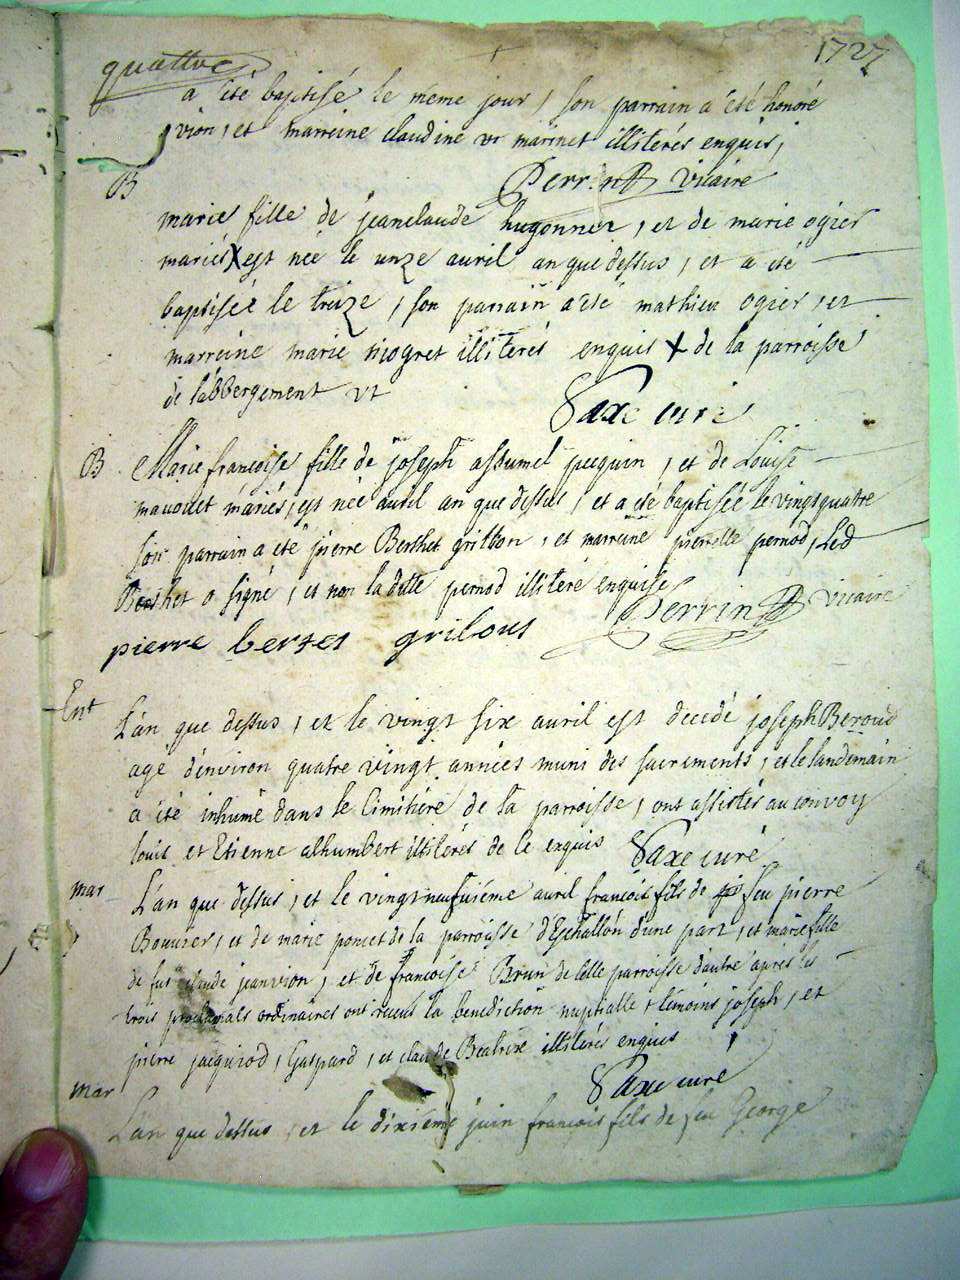 quattre 1727
a été baptisé le meme jour, son parrain a été honoré
vion, et marreine claudine vt marinet illitérés enquis,
Perrin vicaire
B
marie fille de jeanclaude hugonnet, et de marie ogier
mariés X est née le unze auril an que dessus, et a été
baptisée le treize, son parrain a été mathieu ogier, et
marreine marie nicogret illitérés enquis X de la parroisse
de labbergement vt
Saxe curé
B Marie francoise fille de joseph assumel jacquin, et de Louise
mariés, est née auril an que dessus, et a été baptisée le vingt quatre
son parrain a été pierre Berthet grilbon, et marreine pierrette pernod, Led
Berthet a signé, et non la ditte pernod illitéré enquise
Perrin vicaire
pierre berset grilous
Ent
L'an que dessus, et le vingt six auril est decedé joseph Beroud
agé d'énviron quatre vingt années muni des sacrements, et le landemain
a été inhumé dans le Cimitiére de la parroisse, ont assistés au convoy
louis et Etienne alhumbert illitérés de ce enquis Saxe curé
mar
L'an que dessus, et le vingt neufuiéme auril francois fils de feu pierre
Bouurer, et de marie poncet de la parroisse d'Eschallon d'une part, et marie fille
de fut claude jeanvion, et de francoise Brun de cette parroisse d'autre apres les
trois proclamats ordinaires ont receus la benediction nuptialle t témoins joseph, et
pierre jacquiod, Gaspard, et claude Beatrix illitérés enquis
Saxe curé
mar
L'an que dessus, et le dixiéme juin francois fils de feu George